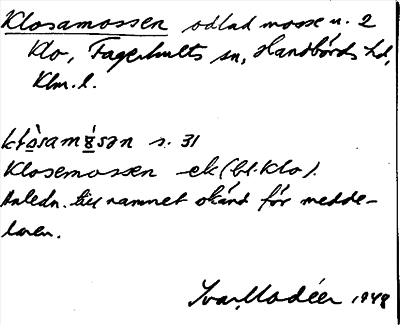 Klosamossen odlad mosse u. 2
Klo, Fagerhults sn, Handbörds hd,
Klm. l.
s. 31
Klosemossen ek (bl. Klo).
Anledn. till namnet okänd för medde-
laren.
Ivar Modéer 1948